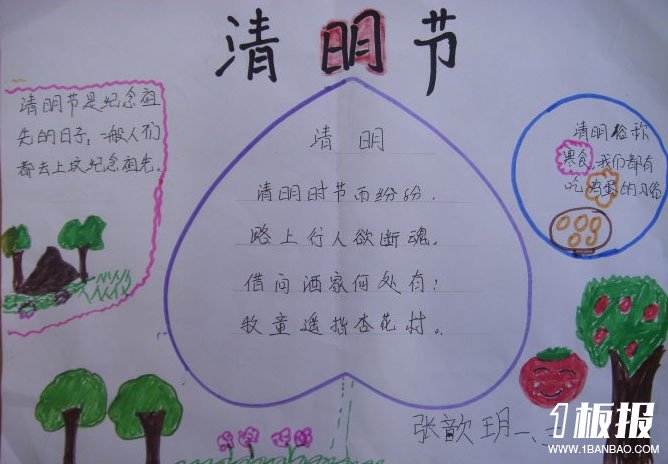 清明节
清明节是纪念祖
先的日子，一般人们
都去上坟纪念祖先。
清明
清明时节雨纷纷，
路上行人欲断魂。
借问酒家何处有？
牧童遥指杏花村。
清明俗称
寒食，我们都有
吃鸡蛋的习俗
张歆玥一、
1板报
WWW.1BANBAO.COM